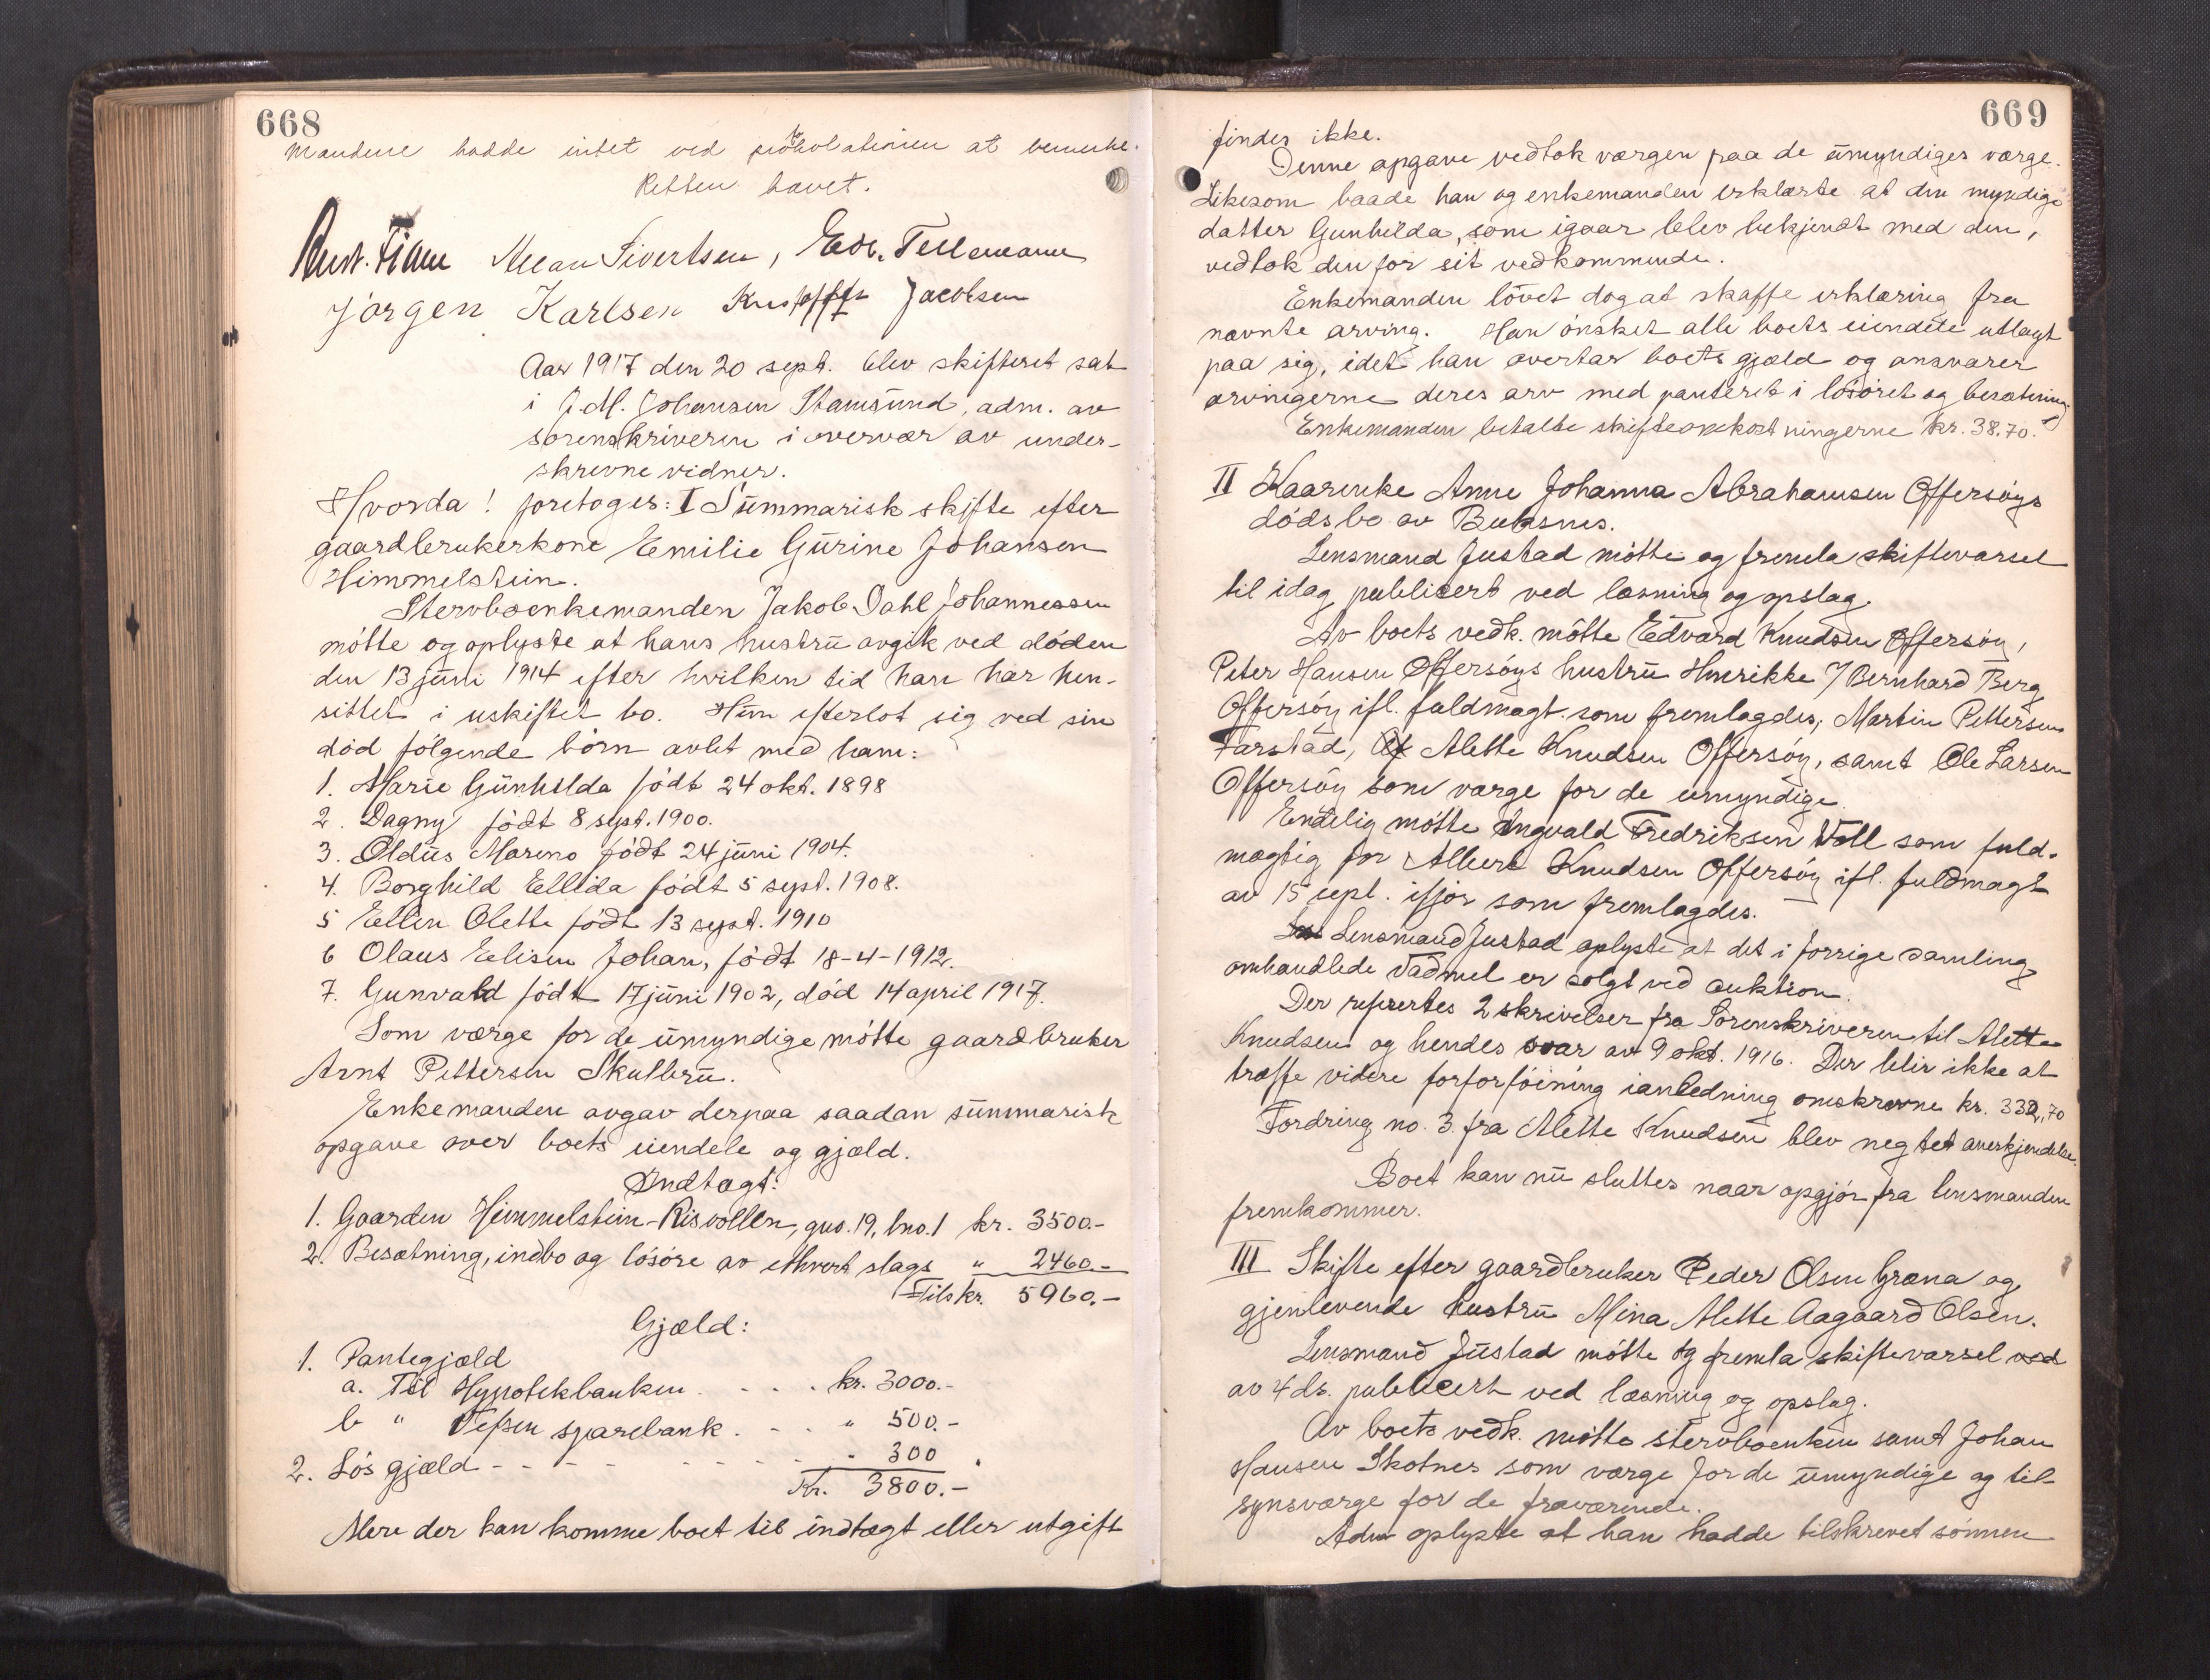 668
Mændene hadde intet ved protokolationen at bemerke.
Retten hævet.
Sivertsen, Edv. Tellemann
Jörgen Karlsen Kristoffer Jacobsen
Aar 1917 den 20 sept. blev skifteret sat
i J. M. Johansen Stamsund, adm. av
sorenskriveren i overvær av under-
skrevne vidner.
Hvorda! foretoges: I Summarisk skifte efter
gaardbrukerkone Emilie Gurine Johansen
Himmelstein.
Stervboenkemanden Jakob Dahl Johannessen
mötte og oplyste at hans hustru avgik ved döden
den 13 juni 1914 efter hvilken tid han har hen-
sittet i uskiftet bo. Hun efterlot sig ved sin
död fölgende börn avlet med ham:
1. Marie Gunhilda födt 24 okt. 1898
2. Dagny födt 8 sept. 1900.
3. Oldus Mareno födt 24 juni 1904.
4. Borghild Ellida födt 5 sept. 1908.
5 Ellen Olette födt 13 sept. 1910
6 Olaus Elisen Johan, födt 18-4-1912.
7. Gunvald födt 17 juni 1902, död 14 april 1917.
Som værge for de umyndige mötte gaardbruker
Arnt Pettersen Skulbru.
Enkemanden avgav derpaa saadan summarisk
opgave over boets eiendele og gjæld.
Indtægt:
1. Gaarden Himmelstein-Risvollen, gno. 19, bno. 1 kr. 3500.-
2. Besætning, indbo og lösöre av ethvert slags " 2460.-
Tils kr. 5960.-
Gjæld:
1. Pantegjæld
a. Til Hypotekbanken . . . . kr. 3000.-
b " Vefsen sparebank . . . " 500.-
2. Lös gjæld - - - - - - - - - " 300
Kr. 3800.-
Mere der kan komme boet til indtægt eller utgift
669
findes ikke.
Denne opgave vedtok værgen paa de umyndiges værge.
Likesom baade han og enkemanden erklærte at den myndige
datter Gunhilda, som igaar blev bekjendt med den,
vedtok den for sit vedkommende.
Enkemanden lövet dog at skaffe erklæring fra
nævnte arving. Han önsket alle boets eiendele utlagt
paa sig, idet han overtar boets gjæld og ansvarer
arvingerne deres arv med panteret i lösöret og besætning.
Enkemanden betalte skifteomkostningerne kr. 38.70.
II Kaarenke Anne Johanna Abrahamsen Offersöys
dödsbo av Buksnes.
Lensmand Justad mötte og fremla skiftevarsel
til idag publicert ved læsning og opslag.
Av boets vedk. mötte Edvard Knudsen Offersöy,
Peter Hansen Offersöys hustru Henrikke v/ Bernhard Berg
Offersöy ifl. fuldmagt som fremlagdes, Martin Pettersen
Farstad, Alette Knudsen Offersöy, samt Ole Larsen
Offersöy som værge for de umyndige.
Endelig mötte Ingvald Fredriksen Voll som fuld-
mægtig for Albert Knudsen Offersöy ifl. fuldmagt
av 15 sept. ifjor som fremlagdes.
Lensmand Justad oplyste at det i forrige samling
omhandlede vadmel er solgt ved auktion.
Der refertes 2 skrivelser fra Sorenskriveren til Alette
Knudsen og hendes svar av 9 okt. 1916. Der blir ikke at
træffe videre forforföining ianledning omskrevne kr. 332,70
Fordring no. 3. fra Alette Knudsen blev negtet anerkjendelse.
Boet kan nu sluttes naar opgjör fra lensmanden
fremkommer.
III Skifte efter gaardbruker Peder Olsen Græna og
gjenlevende hustru Mina Alette Aagaard Olsen.
Lensmand Justad mötte og fremla skiftevarsel ved
av 4 ds. publicert ved læsning og opslag.
Av boets vedk. mötte stervboenken samt Johan
Hansen Skotnes som værge for de umyndige og til-
synsværge for de fraværende.
Adm oplyste at han hadde tilskrevet sönnen